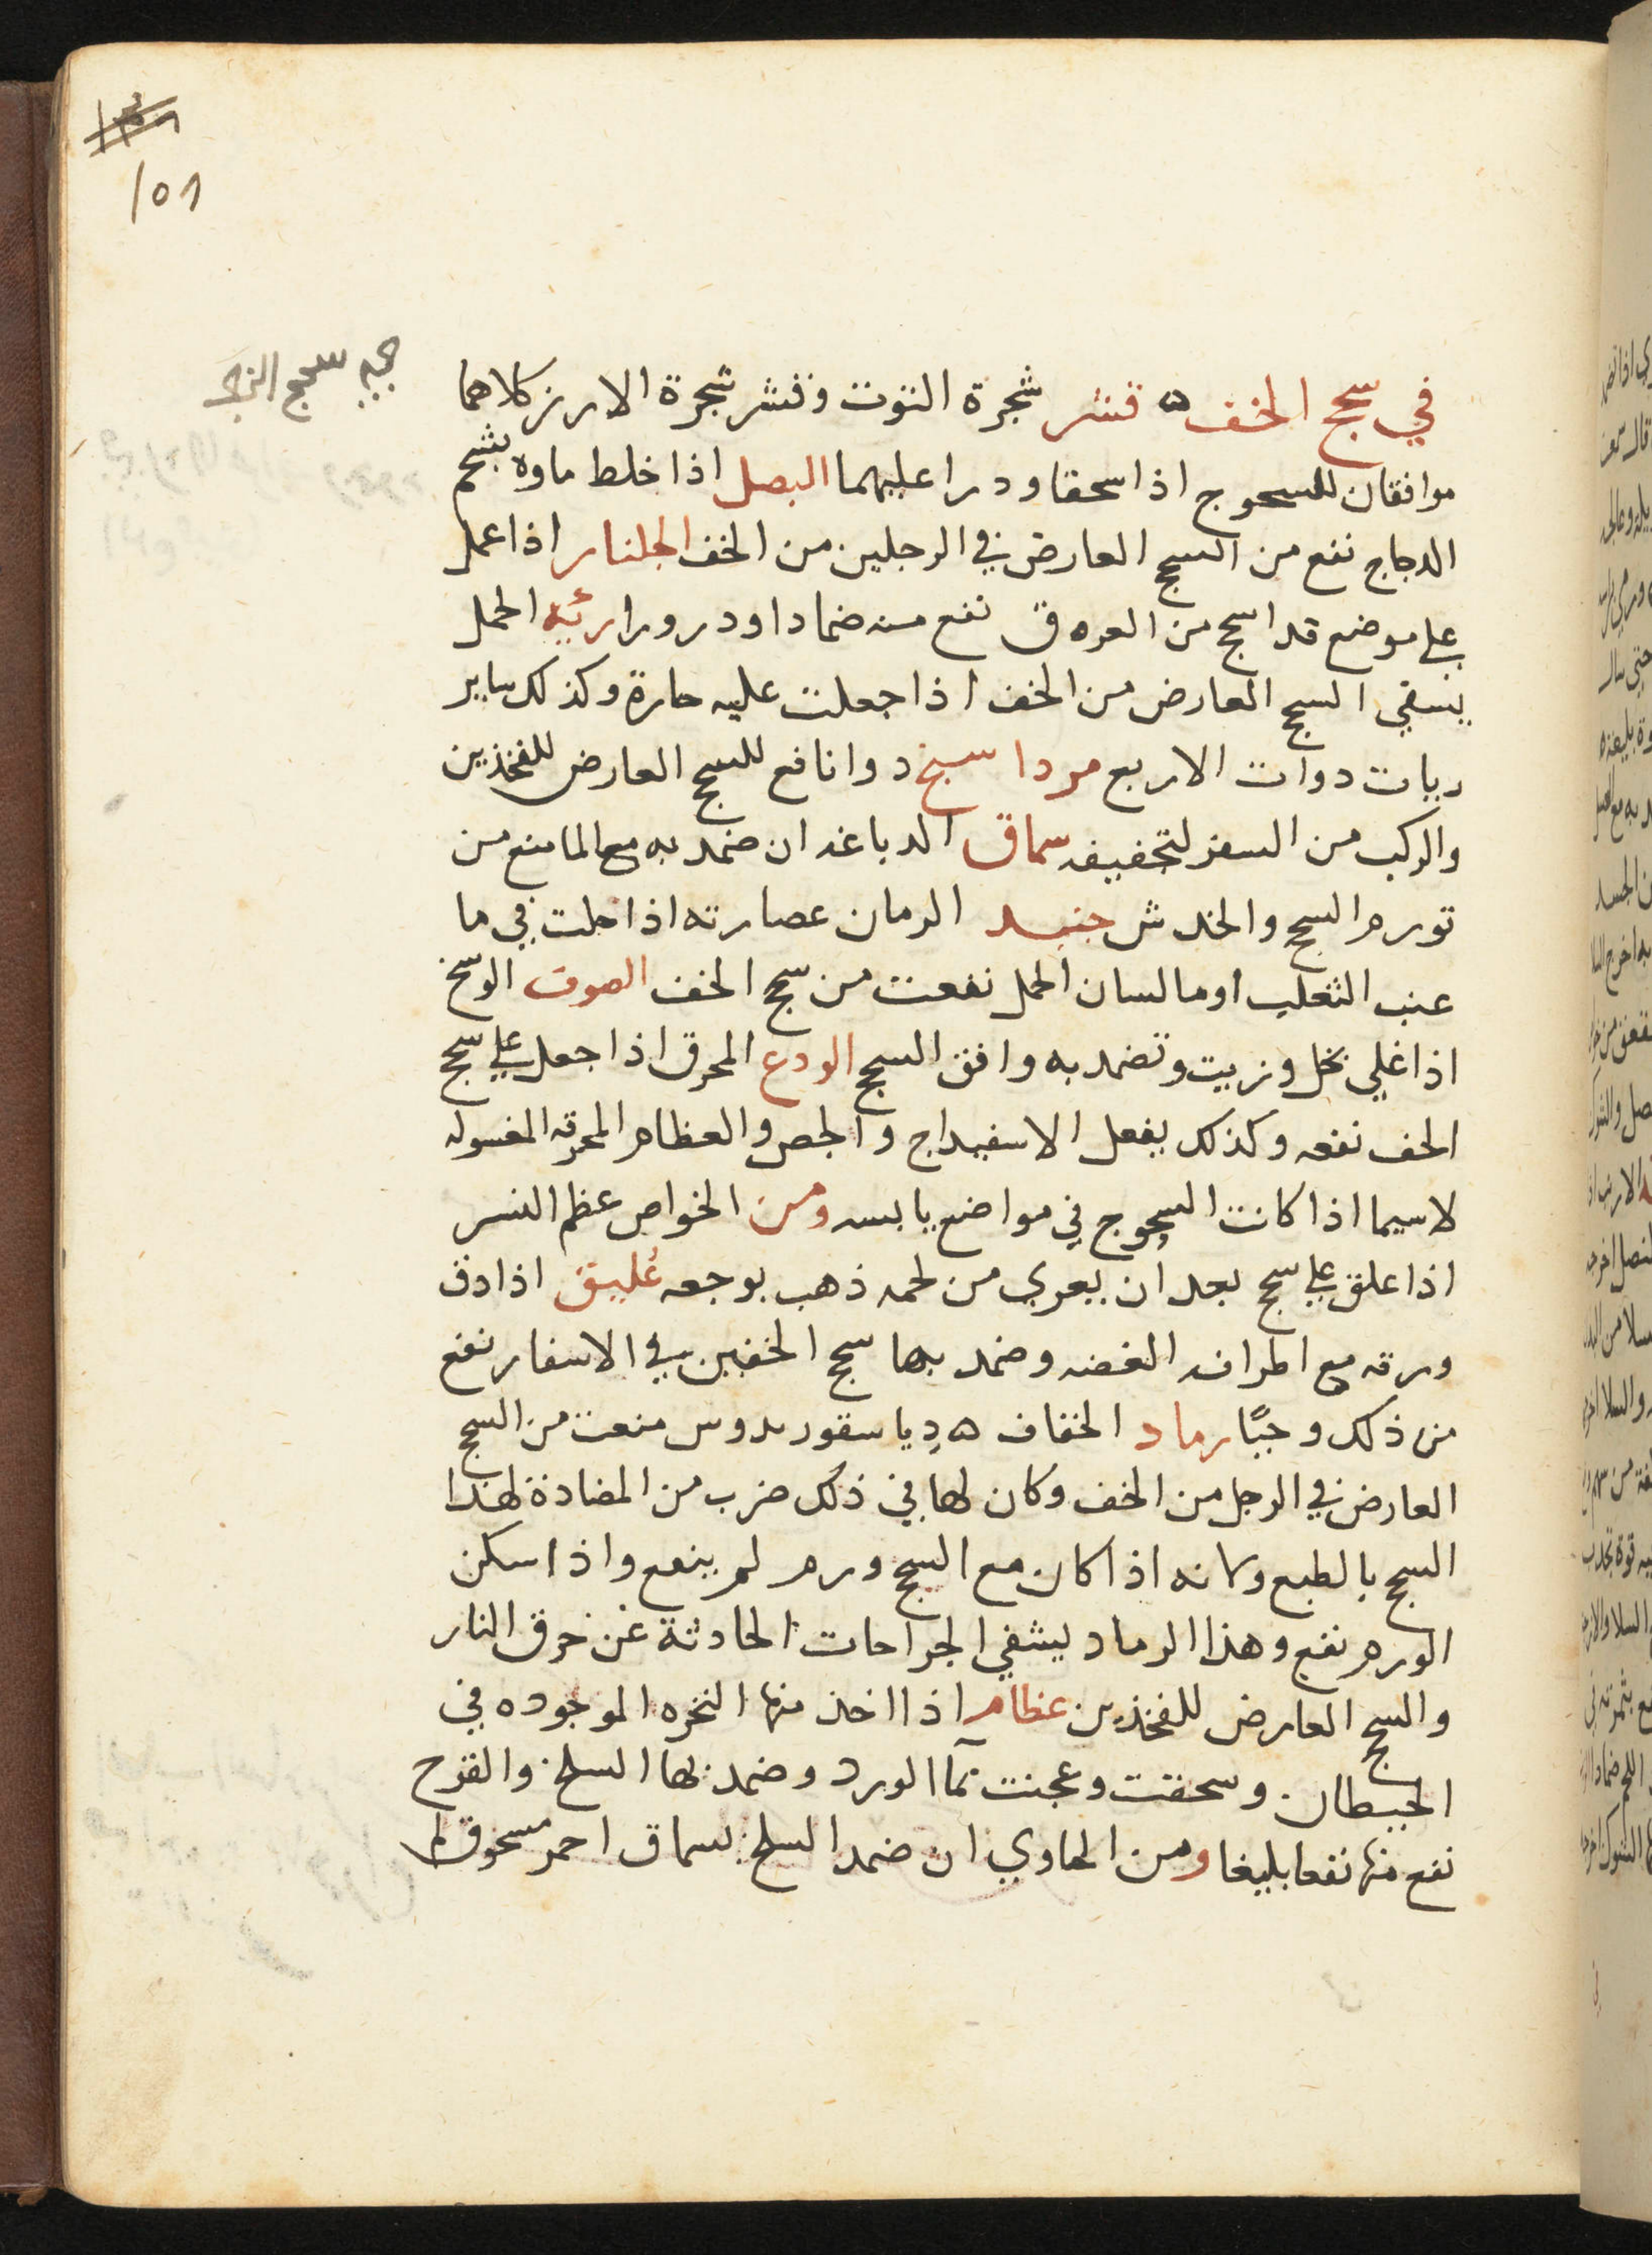 101
في سحج الخف ه قشر شجرة التوت وقشر شجرة الارز كلاهما
موافقان للسحوج اذا سحقا ودرا عليهما البصل اذا خلط ماوه بشحم
الدجاج نفع من السحج العارض في الرجلين من الخف الجلنار اذا عمل
على موضع قد اسحج من العروق نفع منه ضمادا ودرورا رئيه الحمل
يسقي السحج العارض من الخف اذا جعلت عليه حارة وكذلك ساير
ريات دوات الاربع مرداسنج دوا نافع للسحج العارض للفخذين
والركب من السفر لتجفيفه سماق الدباغه ان ضمد به مع الما منع من
تورم السحج والخدش جنبد الرمان عصارته اذا حلت في ما
عنب الثعلب او ما لسان الحمل نفعت من سحج الخف الصوف الوسخ
اذا غلي بخل وزيت وتضمد به وافق السحج الودع المحرق اذا جعل على سحج
الخف نفعه وكذلك يفعل الاسفيداج والجص والعظام المحرقه المغسوله
لاسيما اذا كانت السحوج في مواضع يابسه ومن الخواص عظم النسر
اذا علق على سحج بعد ان يعري من لحمه ذهب بوجعه عُليق اذا دق
ورقه مع اطرافه الغضه وضمد بها سحج الخفين في الاسفار نفع
من ذلك وحيًا رماد الخفاف ه دياسقوريدوس منعت من السحج
العارض في الرجل من الخف وكان لها في ذلك ضرب من المضادة لهذا
السحج بالطبع ولانه اذا كان مع السحج ورم لم ينفع واذا سكن
الورم نفع وهذا الرماد ليشفي الجراحات الحادثة عن حرق النار
والسحج العارض للفخذين عظام اذا اخذ منها النخره الموجوده في
الحيطان وسحقت وعجنت بمآ الورد وضمد بها السلخ والقرح
نفع منها نفعا بليغا ومن الحاوي ان ضمد السلخ بسماق احمر مسحوق